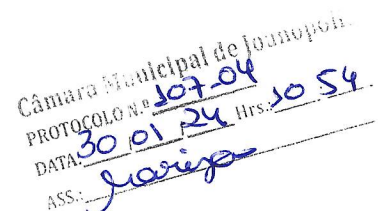 Câmara Municipal de Joanópolis
PROTOCOLO N.º 107-04
DATA: 30 01 24 Hrs.: 10 54
ASS.: Mariza